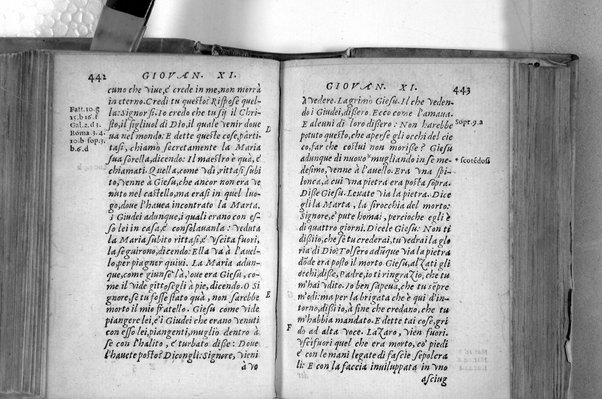 442
GIOVAN. XI.
cuno che viue, è crede in me, non morrà
in eterno. Credi tu questo? Rispose quel-
la: Signor si. Io credo che tu sij il Chri-
sto, il figliuol di Dio, il quale venir doue
ua nel mondo. E dette queste cose, partì-
tasi, chiamò secretamente la Maria
sua sorella, dicendo. Il maestro è quà, è
chiamati. Quella, come vdì, rittasi subi-
to, venne à Giesu, che ancor non era ve
nuto nel castello, ma erasi in quel luo-
go, doue l'hauea incontrato la Marta.
I Giudei adunque, i quali erano con es-
so lei in casa, è consolauanla: veduta
la Maria subito rittasi, è vscita fuori,
la seguirono, dicendo: Ella và à l'auel-
lo, per piagner quiui. La Maria adun-
que, come giunse là, 'oue era Giesu, co-
me il vide gittosegli à pie, dicendo. O Si
gnore, se tu fosse stato quà, non sarebbe
morto il mio fratello. Giesu come vide
piangere lei, è i Giudei che erano venuti
con esso lei, piangenti, mugliò dentro à
se con l'halito, è turbato disse: Doue
l'hauete posto? Dicongli: Signore, vieni
à ve
Fatt. 10.g
Roma. 3.4.
b.6.d
D
E
GIOVAN. XI.
443
à vedere. Lagrimò Giesu. Il che veden-
do i Giudei, dissero. Ecco come l'amaua.
E alcuni di loro dissero: Non harebbe
potuto questo, che aperse gli occhi del cie
co, far che costui non morisse? Giesu
adunque di nuouo * mugliando in se me-
desimo, venne à l'auello. Era vna spi-
lonca, à cui vna pietra era posta sopra.
Disse Giesu. Leuate via la pietra. Dice
gli la Marta, la sirocchia del morto.
Signore, è pute homai, percioche egli è
di quattro giorni. Dicele Giesu: Non ti
dissi io, che se tu crederai, tu vedrai la glo
ria di Dio? Tolsero adūque via la pietra
dōde era posto il morto. Giesu, alzati gli
occhi, disse, Padre, io ti ringrazio, che tu
m'hai vdito. Io ben sapeua, che tu sēpre
m'odi: ma per la brigata che è qui d'in-
torno, dissi io, à fine che credano, che tu
m'habbia mandato. E dette tai cose, gri
dò ad alta voce. Lazaro, vien fuori.
vscì fuori quel che era morto, co' piedi
è con le mani legate di fascie sepolcra
li: E con la faccia inuiluppata in vno
asciug
Sopr. 9.a
* scotēdosi
F